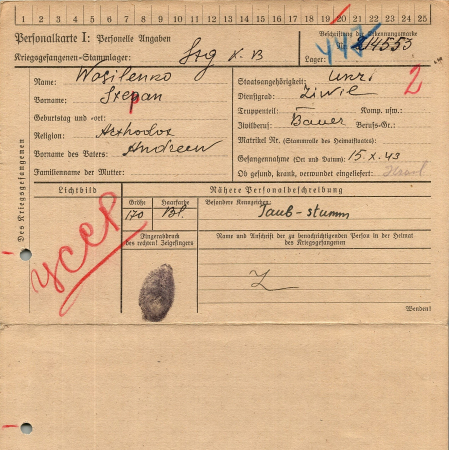 1 2 3 4 5 6 7 8 9 10 11 12 13 14 15 16 17 18 19 20 21 22 23 24 25
Personalkarte I: Personelle Angaben
Kriegsgefangenen-Stammlager: Stg X. B
Beschriftung der Erkennungsmarke
Nr. 214553
Lager:
Des Kriegsgefangenen
Name: Wasilenko
Vorname: Stepan
Geburtstag und -ort:
Religion: Orthodox
Vorname des Vaters: Andreew
Familienname der Mutter:
Staatsangehörigkeit:
2
Dienstgrad: Ziwil
Truppenteil: Komp. usw.:
Zivilberuf: Bauer Berufs-Gr.:
Matrikel Nr. (Stammrolle des Heimatstaates):
Gefangennahme (Ort und Datum): 15.X.43
Ob gesund, krank, verwundet eingeliefert:
Lichtbild
Nähere Personalbeschreibung
Größe
Haarfarbe
Besondere Kennzeichen:
170
Bl.
Taub-stumm
СССР
Fingerabdruck
des rechten! Zeigefingers
Name und Anschrift der zu benachrichtigenden Person in der Heimat
des Kriegsgefangenen
Wenden!